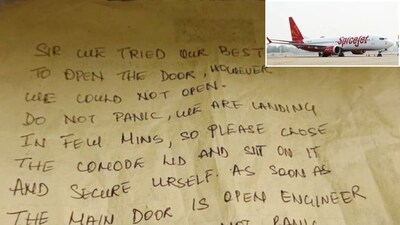 SIR WE TRIED OUR BEST
TO OPEN THE DOOR, HOWEVER
WE COULD NOT OPEN.
DO NOT PANIC, WE ARE LANDING
IN FEW MINS, SO PLEASE CLOSE
THE COMODE LID AND SIT ON IT
AND SECURE URSELF. AS SOON AS
THE MAIN DOOR IS OPEN ENGINEER
NOT PANIC
SpiceJet